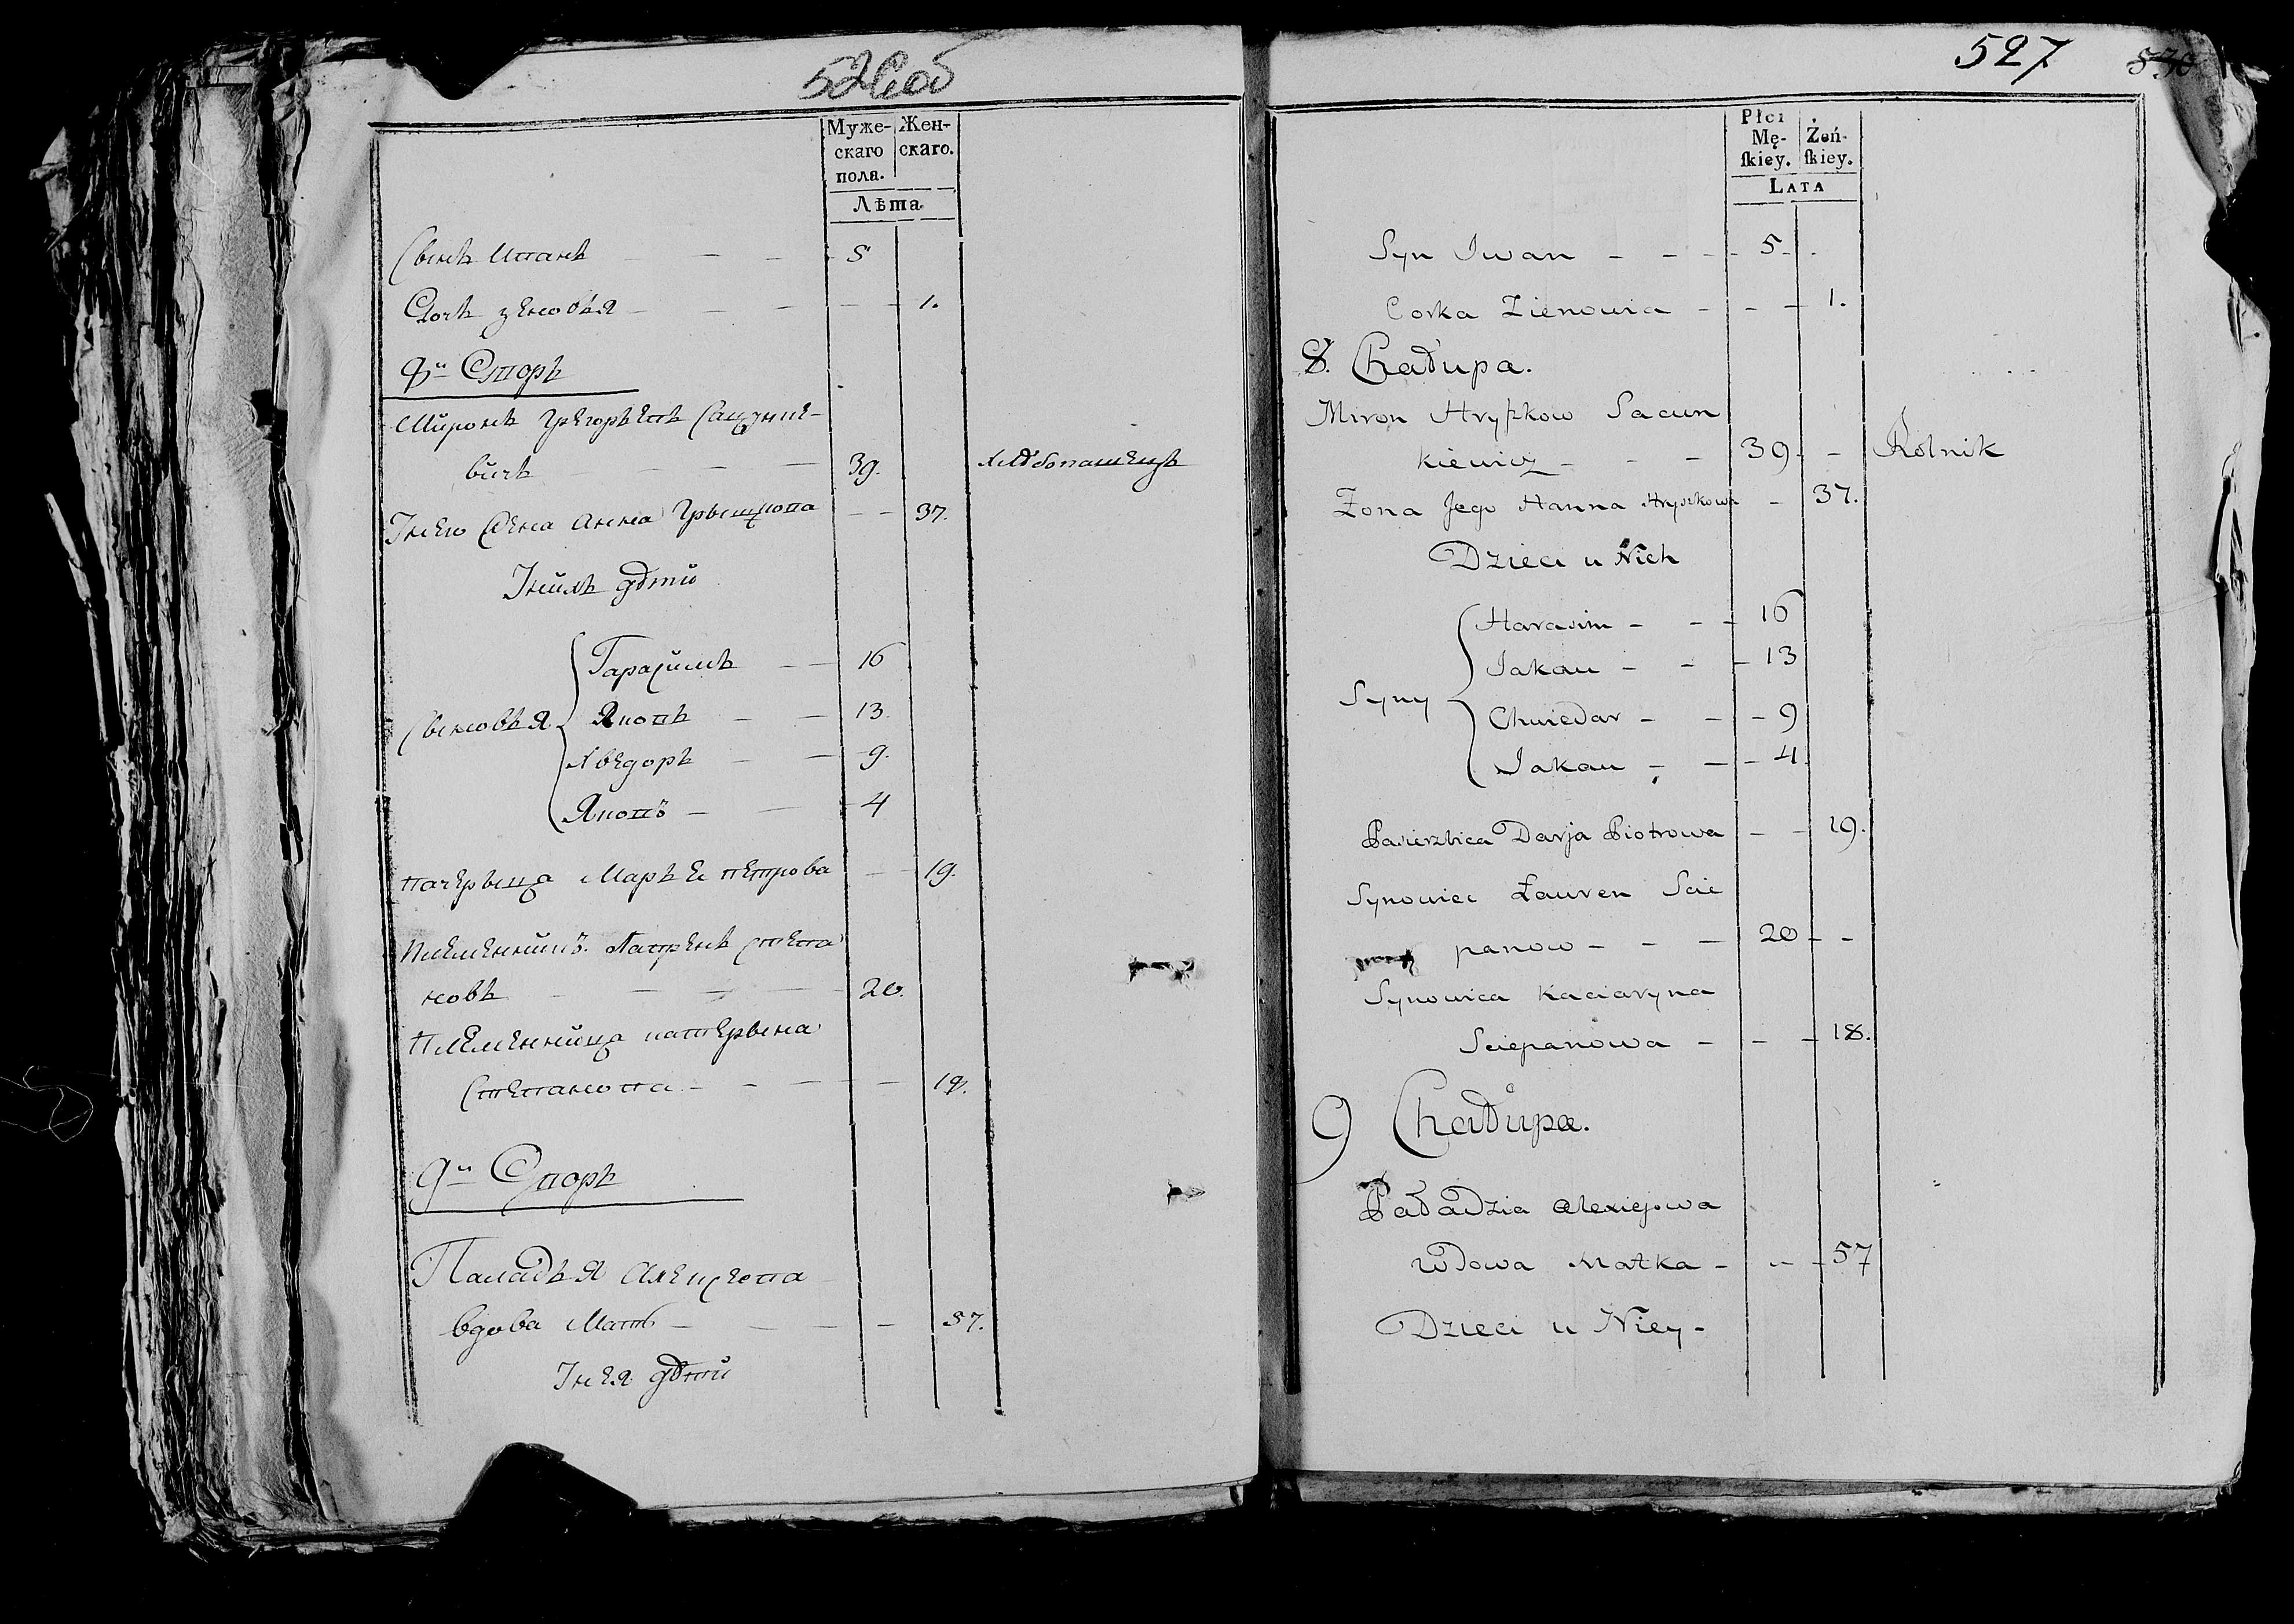 526 об
Муже-
скаго
пола.
Жен-
скаго.
Лѣта.
Сынъ Иванъ - - - 5
Дочь Зеновья - - - - - 1.
8й Дворъ
Миронъ Григорьевъ Сацунке-
вичъ - - - - 39. Хлѣбопашецъ
У него жена Анна Грышкова - - 37.
У нихъ дѣти
Гарасимъ - - 16
Яковъ - - 13.
Сыновья
Хведоръ - - 9.
Яковъ - - 4
падчерыца Марья петрова - - 19.
Племенникъ Лаврѣнъ степа
новъ - - - - 20.
племенница катерына
Степанова - - - - - 18.
9й Дворъ
Паладья Алексеева
вдова Мать - - - - 57.
У нея дѣти
527
830
Płci
Mę-
ſkiey.
Żeń-
ſkiey.
LATA
Syn Iwan - - - 5 - .
Corka Zienowia - - - 1.
8. Chałupa.
Miron Hryszkow Sacun
kiewicz - - - 39. - Rolnik
Zona Jego Hanna Hryszkowa - 37.
Dzieci u Nich
Harasim - - - 16
Jakau - - - 13
Syny
Chwiedar - - - 9
Jakau - - - 4.
Pasierbica Darja Piotrowa - - 19.
Synowiec Łauren Scie
panow - - - 20 - -
Synowica Kaciaryna
Sciepanowa - - - 18.
9 Chałupa.
Paładzia Alexiejowa
Wdowa Matka - - - 57
Dzieci u Niey -